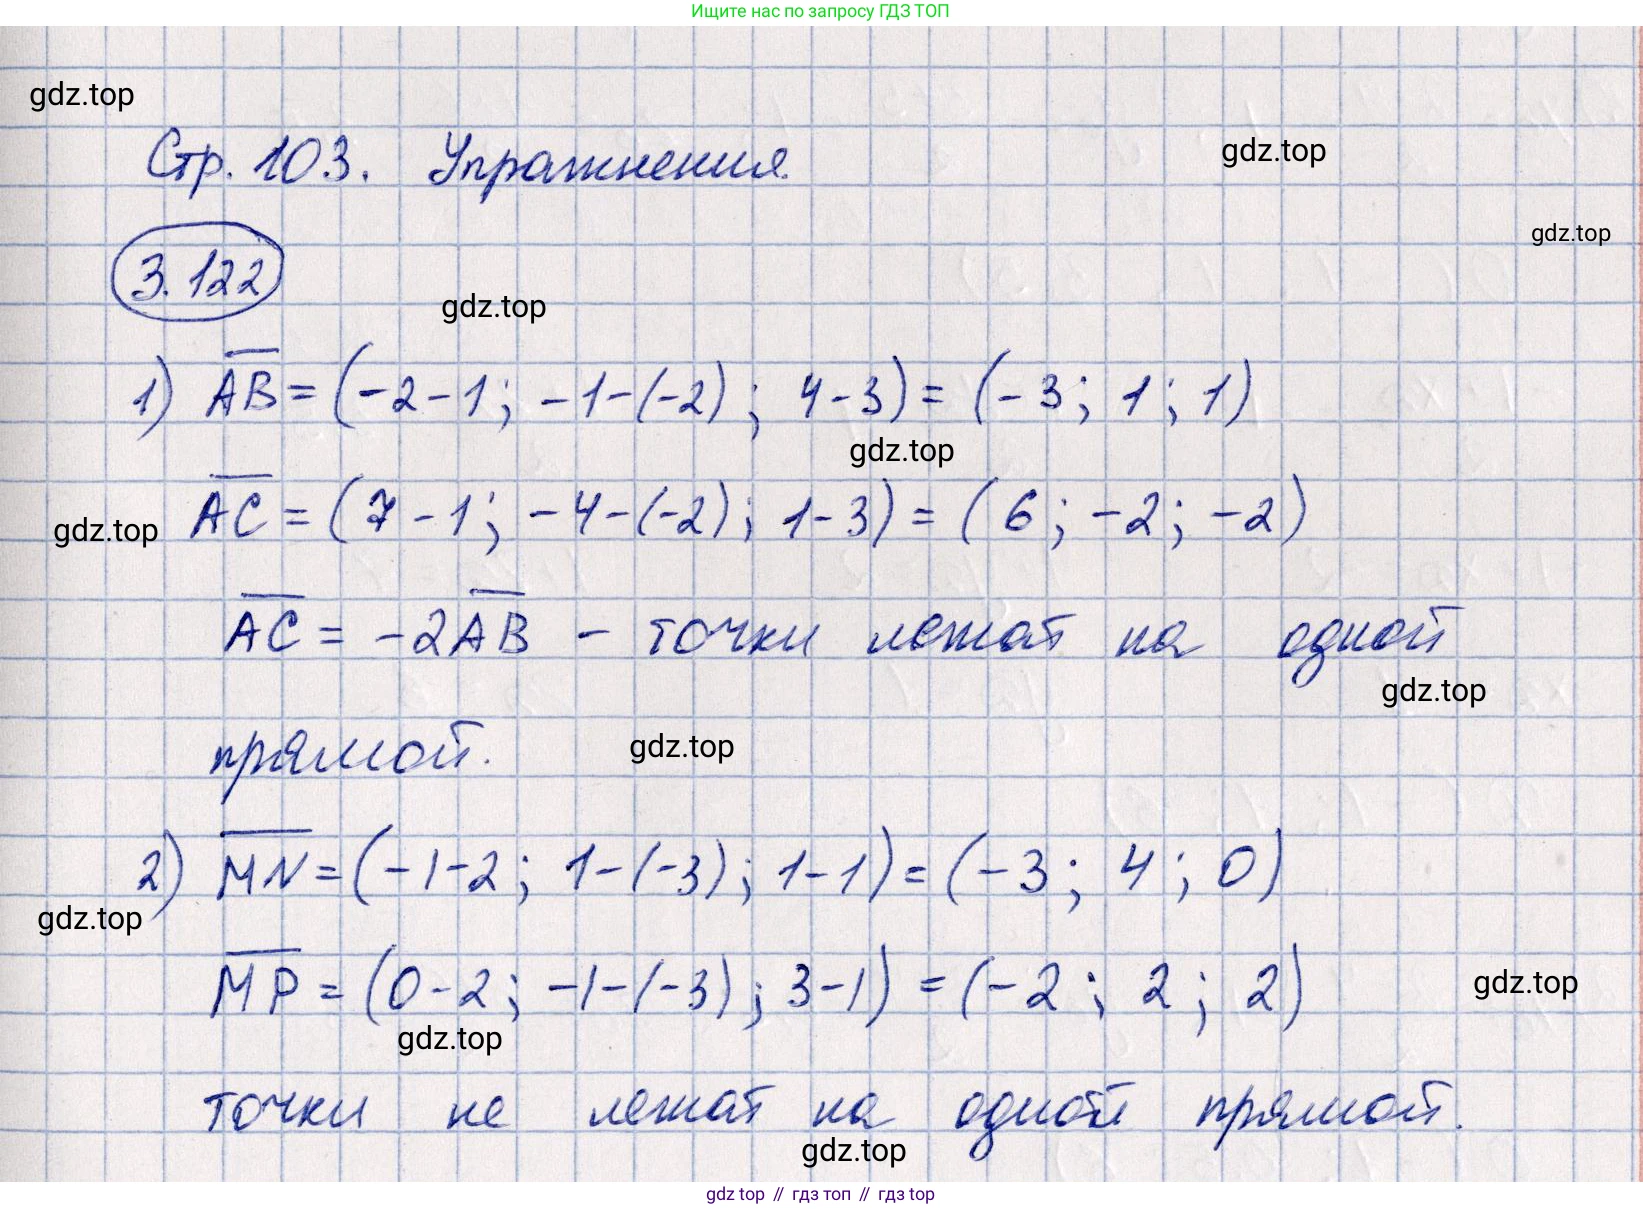 Ищите нас по запросу ГДЗ ТОП
gdz.top
Стр. 103. Упражнения.
gdz.top
gdz.top
3.122
gdz.top
1) AB = (-2-1; -1-(-2); 4-3) = (-3; 1; 1)
gdz.top
AC = (7-1; -4-(-2); 1-3) = (6; -2; -2)
gdz.top
AC = -2AB - точки лежат на одной
gdz.top
прямой.
gdz.top
2) MN = (-1-2; 1-(-3); 1-1) = (-3; 4; 0)
gdz.top
MP = (0-2; -1-(-3); 3-1) = (-2; 2; 2)
gdz.top
gdz.top
точки не лежат на одной прямой.
gdz.top
gdz top // гдз топ // гдз top